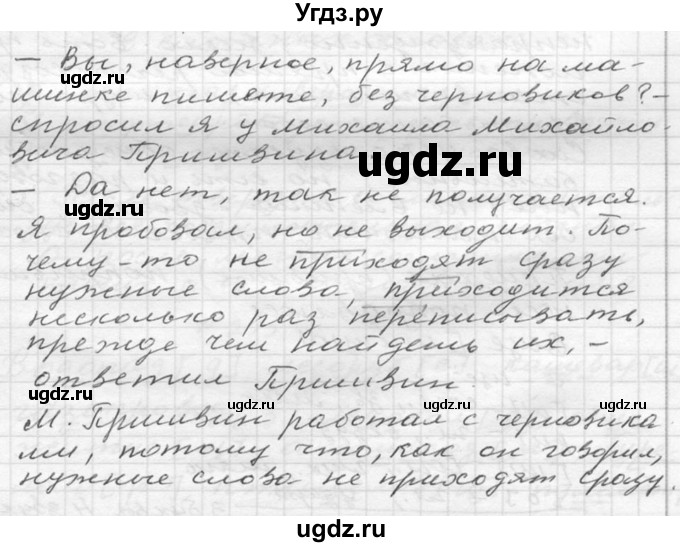 Угдз.ру
— Вы, наверное, прямо на ма-
шинке пишете, без черновиков? –
спросил я у Михаила Михайло-
вича Пришвина.
— Да нет, так не получается.
Я пробовал, но не выходит. По-
чему-то не приходят сразу
нужные слова, приходится
несколько раз переписывать,
прежде чем найдешь их, –
ответил Пришвин.
М. Пришвин работал с черновика
ми, потому что, как он говорил,
нужные слова не приходят сразу.
ugdz.ru